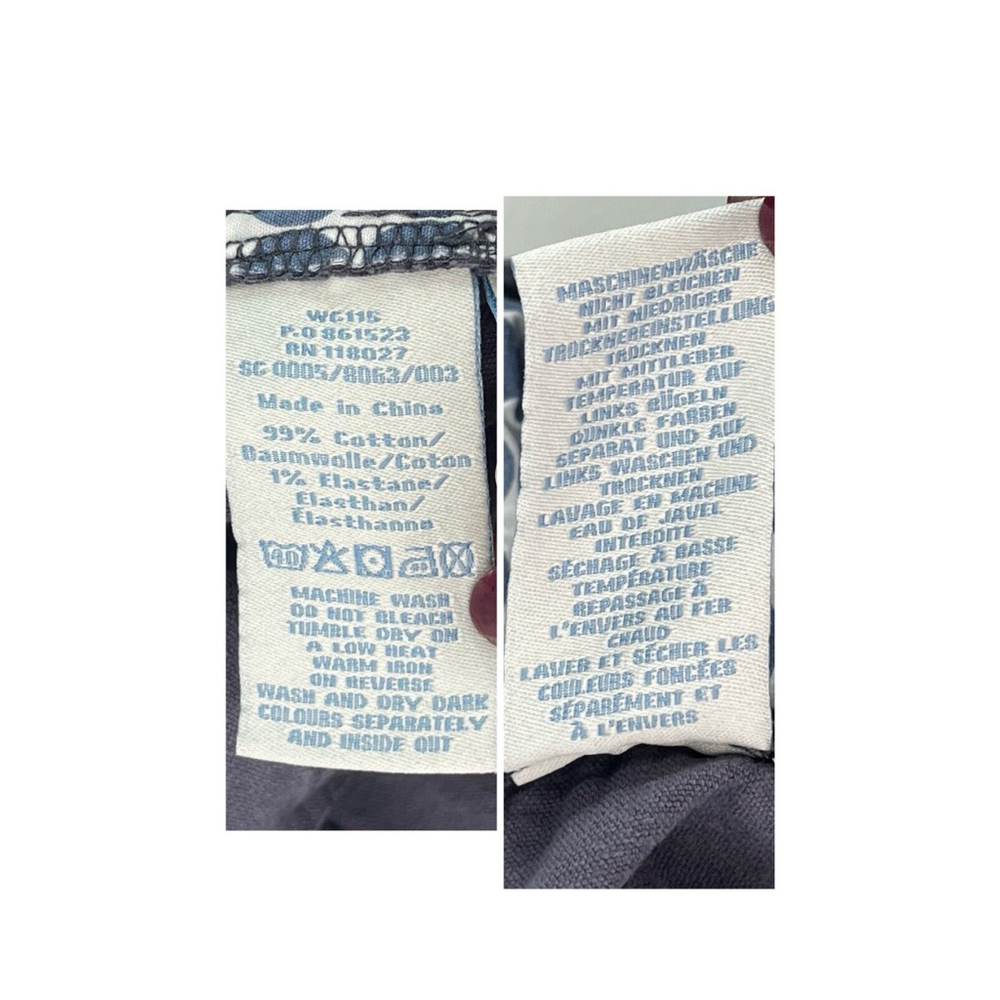 WG115
P.O 861523
RN 118027
SC 0005/8063/003
Made in China
99% Cotton/
Baumwolle/Coton
1% Elastane/
Elasthan/
Élasthanne
40
MACHINE WASH
DO NOT BLEACH
TUMBLE DRY ON
A LOW HEAT
WARM IRON
ON REVERSE
WASH AND DRY DARK
COLOURS SEPARATELY
AND INSIDE OUT
MASCHINENWÄSCHE
NICHT BLEICHEN
MIT NIEDRIGER
TROCKNEREINSTELLUNG
TROCKNEN
MIT MITTLERER
TEMPERATUR AUF
LINKS BÜGELN
DUNKLE FARBEN
SEPARAT UND AUF
LINKS WASCHEN UND
TROCKNEN
LAVAGE EN MACHINE
EAU DE JAVEL
INTERDITE
SÉCHAGE À BASSE
TEMPÉRATURE
REPASSAGE À
L'ENVERS AU FER
CHAUD
LAVER ET SÉCHER LES
COULEURS FONCÉES
SÉPARÉMENT ET
À L'ENVERS